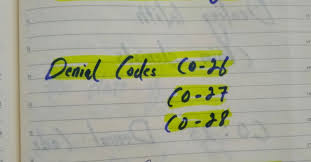 Denial Codes CO-26
CO-27
CO-28